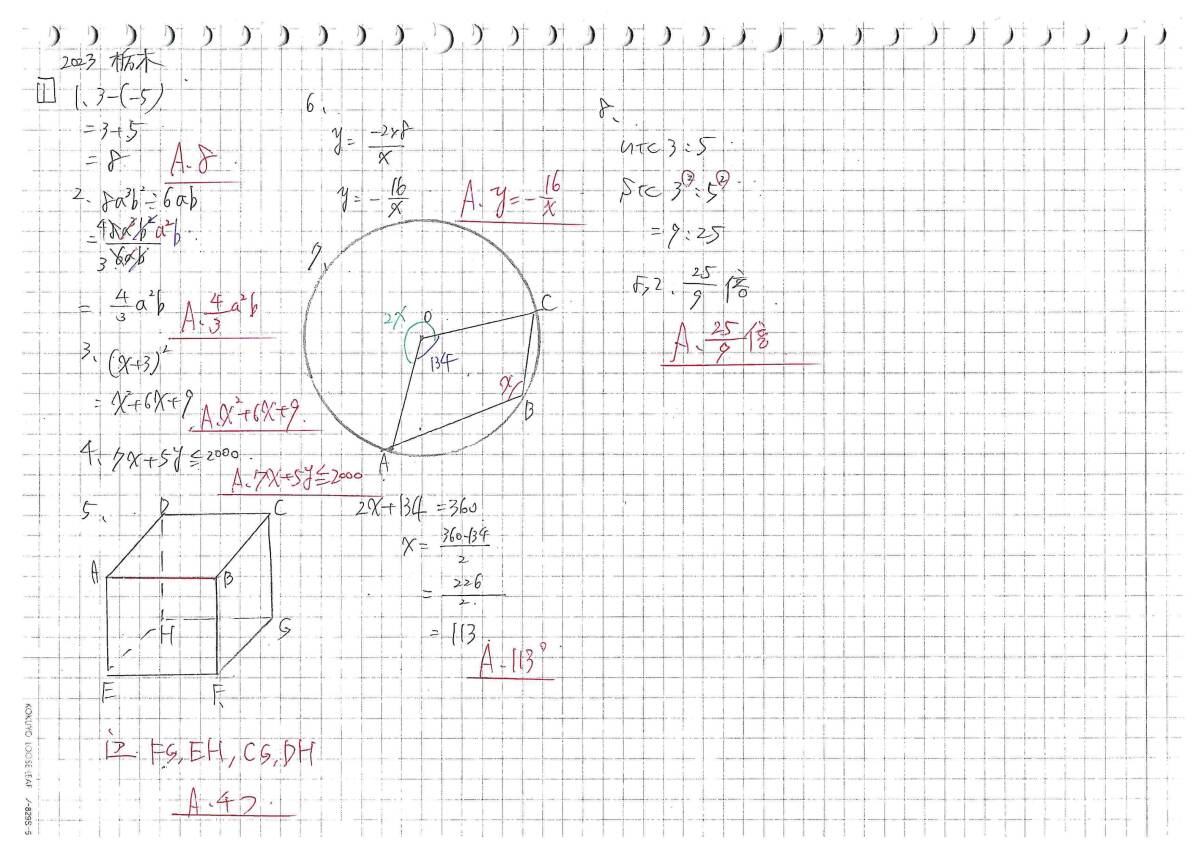 2023 栃木
1
1、3-(-5)
=3+5
=8
A.8
2、8a³b²÷6ab
=8a³b²/6ab
4 a²b
3
=4/3 a²b
A.4/3 a²b
3、(x+3)²
=x²+6x+9
A.x²+6x+9
4、7x+5y≦2000
A.7x+5y≦2000
5、
D C
A B
H G
E F
辺 FG,EH,CG,DH
A.4つ
6、
y=-2×8/x
y=-16/x
A.y=-16/x
7、
O C
2x
134
x
B
A
2x+134=360
x=360-134/2
=226/2
=113
A.113°
8、
3:5
3²:5²
=9:25
よって、25/9倍
A.25/9倍
KOKUYO LOOSE-LEAF ノ-829S-5